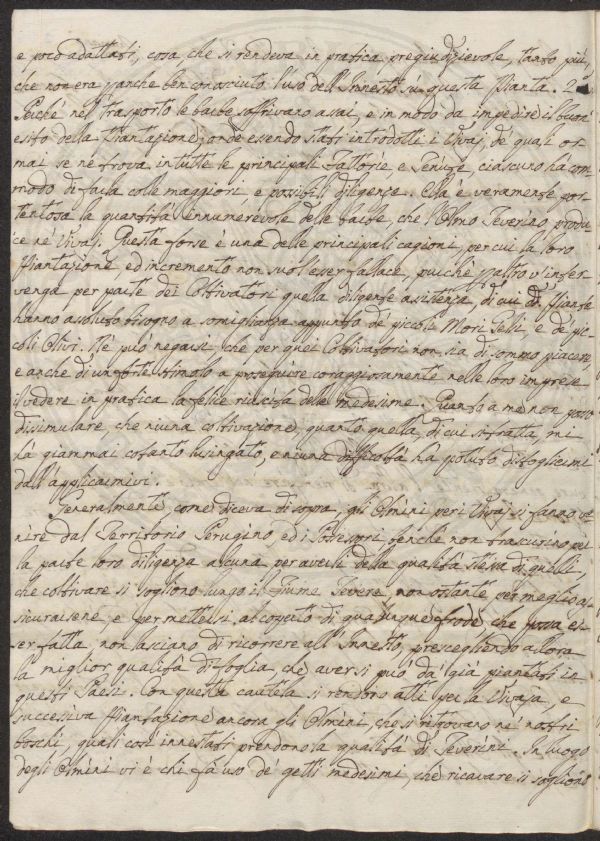 e poco adattati; cosa, che si rendeva in pratica pregiudizievole, tanto più,
che non era p anche ben conosciuto l'uso dell'Innesto sù questa Pianta. 2°
Poiché nel trasporto le barbe soffrivano assai, e in modo da impedire il buon
esito della Piantazione; onde essendo stati introdotti i Vivaj, de' quali or
mai se ne trova in tutte le principali Fattorie e Tenute, ciascuno hà com
modo di farla colle maggiori, e possibili diligenze. Ella è veramente por
tentosa la quantità innumerevole delle barbe, che l'Olmo Teverino produ
ce nè Vivaj. Questa forse è una delle principali cagioni, per cui la loro
Piantazione, ed incremento non suol'esser fallace, purchè p altro v'inter
venga per parte dei Coltivatori quella diligente assistenza, di cui le Piante
hanno assoluto bisogno a somiglianza appunto de' piccoli Mori Gelsi, e de' pic-
coli Olivi. Nè può negarsi che per quei Coltivatori non sia di sommo piacere,
e anche di un forte stimolo a proseguire coraggiosamente nelle loro imprese
il vedere in pratica la felice riuscita delle medesime. Quanto a me non posso
dissimulare, che niuna coltivazione, quanto quella, di cui si tratta, mi
hà giammai cotanto lusingato, e niuna difficoltà ha potuto distogliermi
dall'applicarmivi.
Generalmente, come diceva di sopra, gli Olmini per i Vivaj si fanno ve-
nire dal Territorio Perugino, ed i Possessori, benchè non trascurino per
la parte loro diligenza alcuna per averli della qualità stessa di quelli,
che coltivare si sogliono lungo il Fiume Tevere, non ostante per meglio as
sicurarsene, e per mettersi al coperto di qualunque frode che possa es-
ser fatta, non lasciano di ricorrere all'Innesto, prescegliendo allora
la miglior qualità di foglia, che aver si può da' già piantati in
questi Paesi. Con questa cautela si rendono atti per la Vivaja, e
successiva Piantazione ancora gli Olmini, che si ritrovano ne' nostri
boschi, quali così innestati prendono la qualità di Teverini. In luogo
degli Olmini vi è chi fà uso de' getti medesimi, che ricavare si sogliono